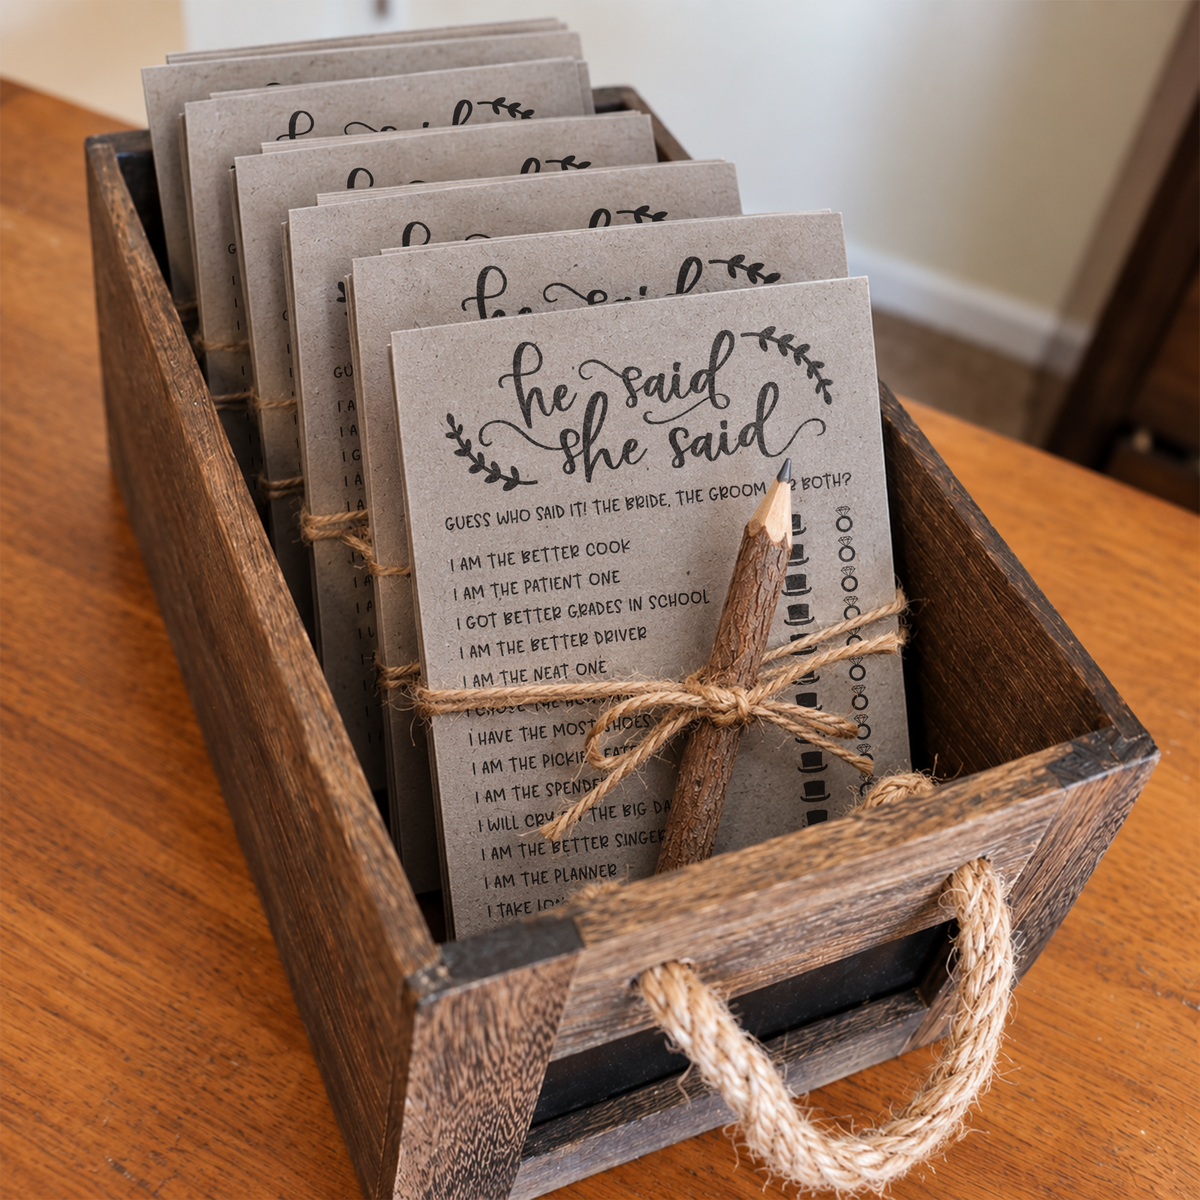 he said
she said
GUESS WHO SAID IT! THE BRIDE, THE GROOM, OR BOTH?
I AM THE BETTER COOK
I AM THE PATIENT ONE
I GOT BETTER GRADES IN SCHOOL
I AM THE BETTER DRIVER
I AM THE NEAT ONE
I CHOSE THE
I HAVE THE MOST SHOES
I AM THE PICKIER EATER
I AM THE SPENDER
I WILL CRY ON THE BIG DAY
I AM THE BETTER SINGER
I AM THE PLANNER
I TAKE
he said
he said